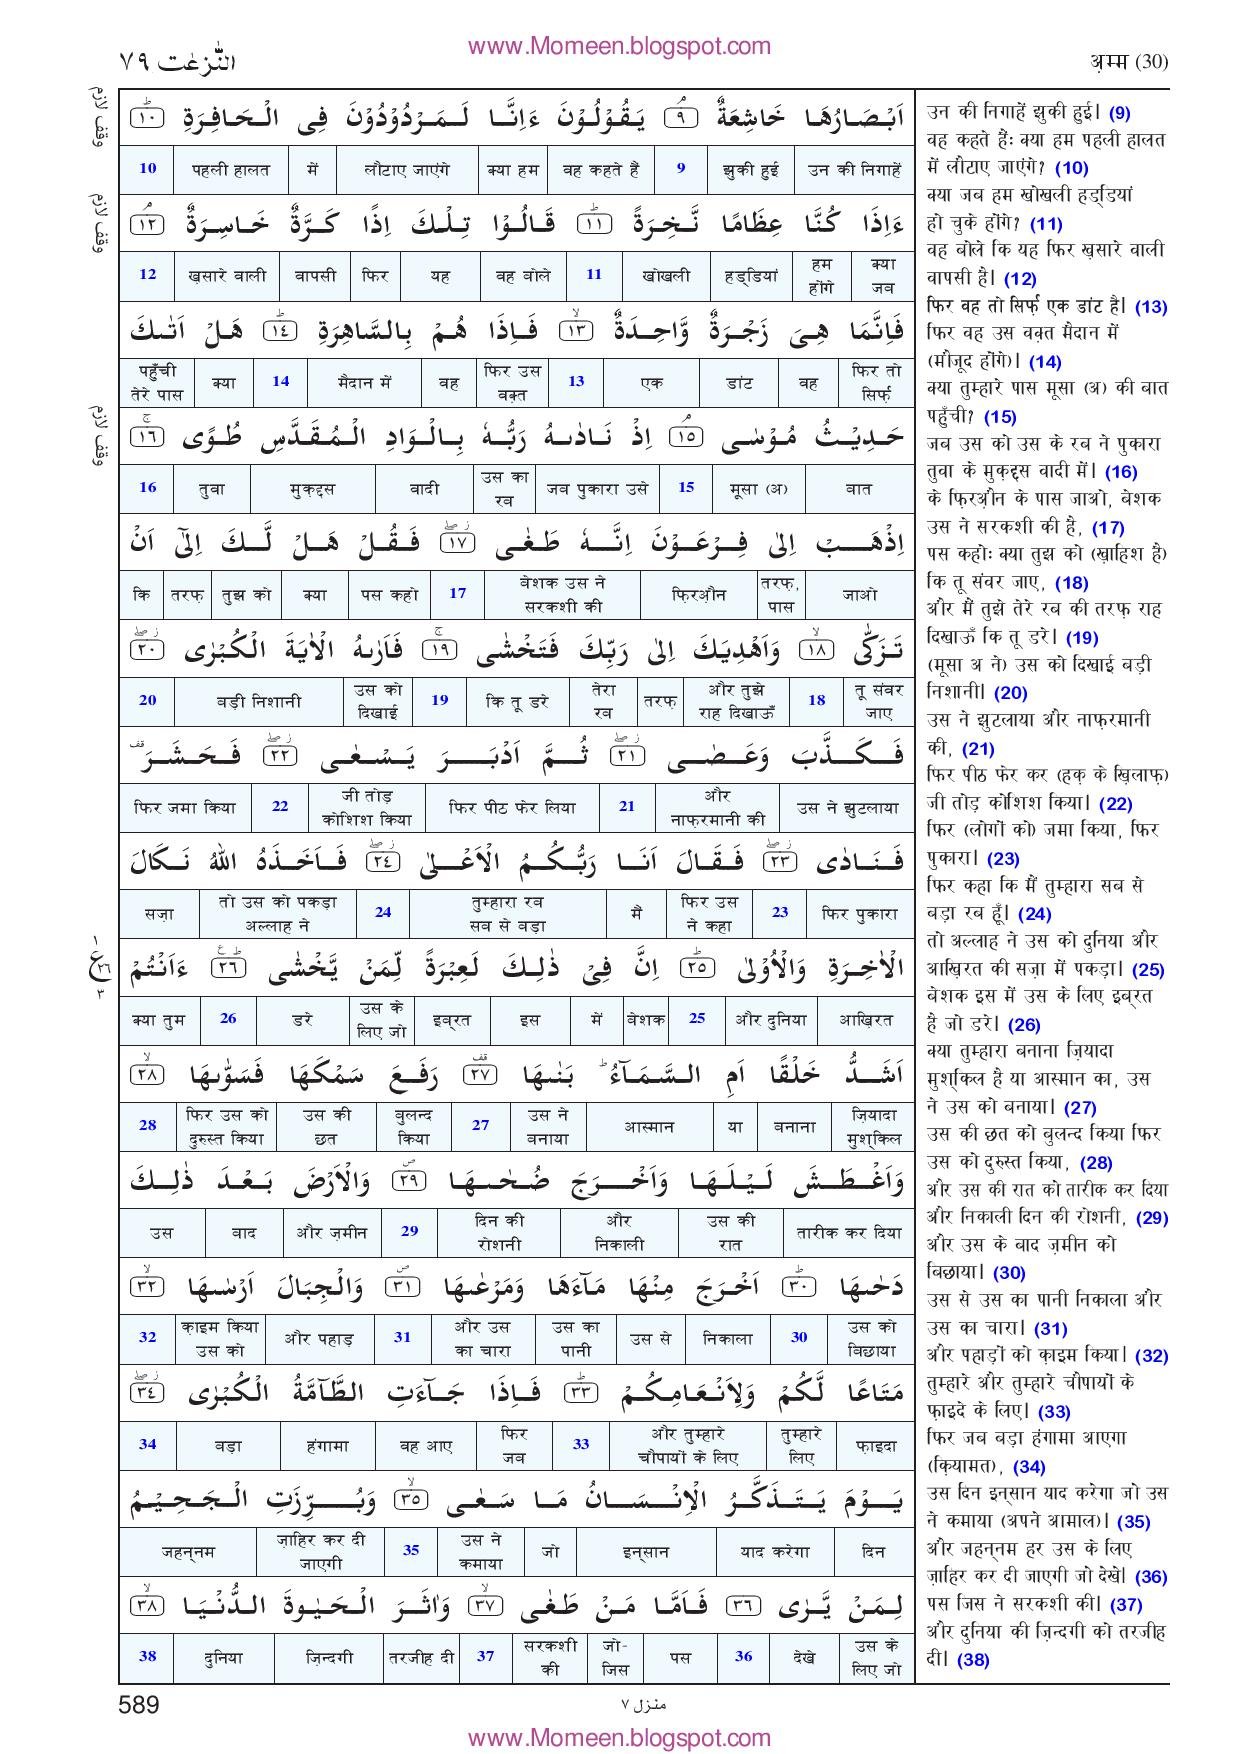 www.Momeen.blogspot.com
النّٰزعٰت ٧٩
अ़म्म (30)
اَبْصَارُهَا خَاشِعَةٌ ۘ ﴿٩﴾ يَقُوْلُوْنَ ءَاِنَّا لَمَرْدُوْدُوْنَ فِى الْحَافِرَةِ ؕ ﴿١٠﴾ وقف لازم
10 पहली हालत में लौटाए जाएंगे क्या हम वह कहते हैं 9 झुकी हुई उन की निगाहें
ءَاِذَا كُنَّا عِظَامًا نَّخِرَةً ؕ ﴿١١﴾ قَالُوْا تِلْكَ اِذًا كَرَّةٌ خَاسِرَةٌ ۘ ﴿١٢﴾ وقف لازم
12 ख़सारे वाली वापसी फिर यह वह बोले 11 खोखली हड्डियां हम होंगे क्या जब
فَاِنَّمَا هِىَ زَجْرَةٌ وَّاحِدَةٌ ۙ ﴿١٣﴾ فَاِذَا هُمْ بِالسَّاهِرَةِ ؕ ﴿١٤﴾ هَلْ اَتٰىكَ
पहुँची तेरे पास क्या 14 मैदान में वह फिर उस वक़्त 13 एक डांट वह फिर तो सिर्फ़
حَدِيْثُ مُوْسٰى ۘ ﴿١٥﴾ اِذْ نَادٰىهُ رَبُّهٗ بِالْوَادِ الْمُقَدَّسِ طُوًى ۚ ﴿١٦﴾ وقف لازم
16 तुवा मुक़द्दस वादी उस का रब जब पुकारा उसे 15 मूसा (अ) बात
اِذْهَبْ اِلٰى فِرْعَوْنَ اِنَّهٗ طَغٰى ۖ ﴿١٧﴾ فَقُلْ هَلْ لَّكَ اِلٰٓى اَنْ
कि तरफ़ तुझ को क्या पस कहो 17 बेशक उस ने सरकशी की फिरऔ़न तरफ़, पास जाओ
تَزَكّٰى ۙ ﴿١٨﴾ وَاَهْدِيَكَ اِلٰى رَبِّكَ فَتَخْشٰى ۚ ﴿١٩﴾ فَاَرٰىهُ الْاٰيَةَ الْكُبْرٰى ۖ ﴿٢٠﴾
20 बड़ी निशानी उस को दिखाई 19 कि तू डरे तेरा रब तरफ़ और तुझे राह दिखाऊँ 18 तू संवर जाए
فَكَذَّبَ وَعَصٰى ۖ ﴿٢١﴾ ثُمَّ اَدْبَرَ يَسْعٰى ۖ ﴿٢٢﴾ فَحَشَرَ قف
फिर जमा किया 22 जी तोड़ कोशिश किया फिर पीठ फेर लिया 21 और नाफ़रमानी की उस ने झुटलाया
فَنَادٰى ۖ ﴿٢٣﴾ فَقَالَ اَنَا رَبُّكُمُ الْاَعْلٰى ۖ ﴿٢٤﴾ فَاَخَذَهُ اللّٰهُ نَكَالَ
सज़ा तो उस को पकड़ा अल्लाह ने 24 तुम्हारा रब सब से बड़ा मैं फिर उस ने कहा 23 फिर पुकारा
الْاٰخِرَةِ وَالْاُوْلٰى ؕ ﴿٢٥﴾ اِنَّ فِىْ ذٰلِكَ لَعِبْرَةً لِّمَنْ يَّخْشٰى ؕ ﴿٢٦﴾ ءَاَنْتُمْ ١ ع ٢٦ ٣
क्या तुम 26 डरे उस के लिए जो इब्रत इस में बेशक 25 और दुनिया आख़िरत
اَشَدُّ خَلْقًا اَمِ السَّمَآءُ ؕ بَنٰىهَا قف ﴿٢٧﴾ رَفَعَ سَمْكَهَا فَسَوّٰىهَا ۙ ﴿٢٨﴾
28 फिर उस को दुरुस्त किया उस की छत बुलन्द किया 27 उस ने बनाया आस्मान या बनाना ज़ियादा मुश्किल
وَاَغْطَشَ لَيْلَهَا وَاَخْرَجَ ضُحٰىهَا ۪ ﴿٢٩﴾ وَالْاَرْضَ بَعْدَ ذٰلِكَ
उस बाद और ज़मीन 29 दिन की रोशनी और निकाली उस की रात तारीक कर दिया
دَحٰىهَا ؕ ﴿٣٠﴾ اَخْرَجَ مِنْهَا مَآءَهَا وَمَرْعٰىهَا ۪ ﴿٣١﴾ وَالْجِبَالَ اَرْسٰىهَا ۙ ﴿٣٢﴾
32 क़ाइम किया उस को और पहाड़ 31 और उस का चारा उस का पानी उस से निकाला 30 उस को बिछाया
مَتَاعًا لَّكُمْ وَلِاَنْعَامِكُمْ ؕ ﴿٣٣﴾ فَاِذَا جَآءَتِ الطَّآمَّةُ الْكُبْرٰى ۖ ﴿٣٤﴾
34 बड़ा हंगामा वह आए फिर जब 33 और तुम्हारे चौपायों के लिए तुम्हारे लिए फ़ाइदा
يَوْمَ يَتَذَكَّرُ الْاِنْسَانُ مَا سَعٰى ۙ ﴿٣٥﴾ وَبُرِّزَتِ الْجَحِيْمُ
जहन्नम ज़ाहिर कर दी जाएगी 35 उस ने कमाया जो इन्सान याद करेगा दिन
لِمَنْ يَّرٰى ﴿٣٦﴾ فَاَمَّا مَنْ طَغٰى ۙ ﴿٣٧﴾ وَاٰثَرَ الْحَيٰوةَ الدُّنْيَا ۙ ﴿٣٨﴾
38 दुनिया ज़िन्दगी तरजीह दी 37 सरकशी की जो-जिस पस 36 देखे उस के लिए जो
उन की निगाहें झुकी हुई। (9)
वह कहते हैंः क्या हम पहली हालत
में लौटाए जाएंगे? (10)
क्या जब हम खोखली हड्डियां
हो चुके होंगे? (11)
वह बोले कि यह फिर ख़सारे वाली
वापसी है। (12)
फिर वह तो सिर्फ़ एक डांट है। (13)
फिर वह उस वक़्त मैदान में
(मौजूद होंगे)। (14)
क्या तुम्हारे पास मूसा (अ) की बात
पहुँची? (15)
जब उस को उस के रब ने पुकारा
तुवा के मुक़द्दस वादी में। (16)
के फ़िरऔ़न के पास जाओ, बेशक
उस ने सरकशी की है, (17)
पस कहोः क्या तुझ को (ख़ाहिश है)
कि तू संवर जाए, (18)
और मैं तुझे तेरे रब की तरफ़ राह
दिखाऊँ कि तू डरे। (19)
(मूसा अ ने) उस को दिखाई बड़ी
निशानी। (20)
उस ने झुटलाया और नाफ़रमानी
की, (21)
फिर पीठ फेर कर (हक़ के ख़िलाफ़)
जी तोड़ कोशिश किया। (22)
फिर (लोगों को) जमा किया, फिर
पुकारा। (23)
फिर कहा कि मैं तुम्हारा सब से
बड़ा रब हूँ। (24)
तो अल्लाह ने उस को दुनिया और
आख़िरत की सज़ा में पकड़ा। (25)
बेशक इस में उस के लिए इब्रत
है जो डरे। (26)
क्या तुम्हारा बनाना ज़ियादा
मुश्किल है या आस्मान का, उस
ने उस को बनाया। (27)
उस की छत को बुलन्द किया फिर
उस को दुरुस्त किया, (28)
और उस की रात को तारीक कर दिया
और निकाली दिन की रोशनी, (29)
और उस के बाद ज़मीन को
बिछाया। (30)
उस से उस का पानी निकाला और
उस का चारा। (31)
और पहाड़ों को क़ाइम किया। (32)
तुम्हारे और तुम्हारे चौपायों के
फ़ाइदे के लिए। (33)
फिर जब बड़ा हंगामा आएगा
(क़ियामत), (34)
उस दिन इन्सान याद करेगा जो उस
ने कमाया (अपने आमाल)। (35)
और जहन्नम हर उस के लिए
ज़ाहिर कर दी जाएगी जो देखे। (36)
पस जिस ने सरकशी की। (37)
और दुनिया की ज़िन्दगी को तरजीह
दी। (38)
589
منزل ٧
www.Momeen.blogspot.com